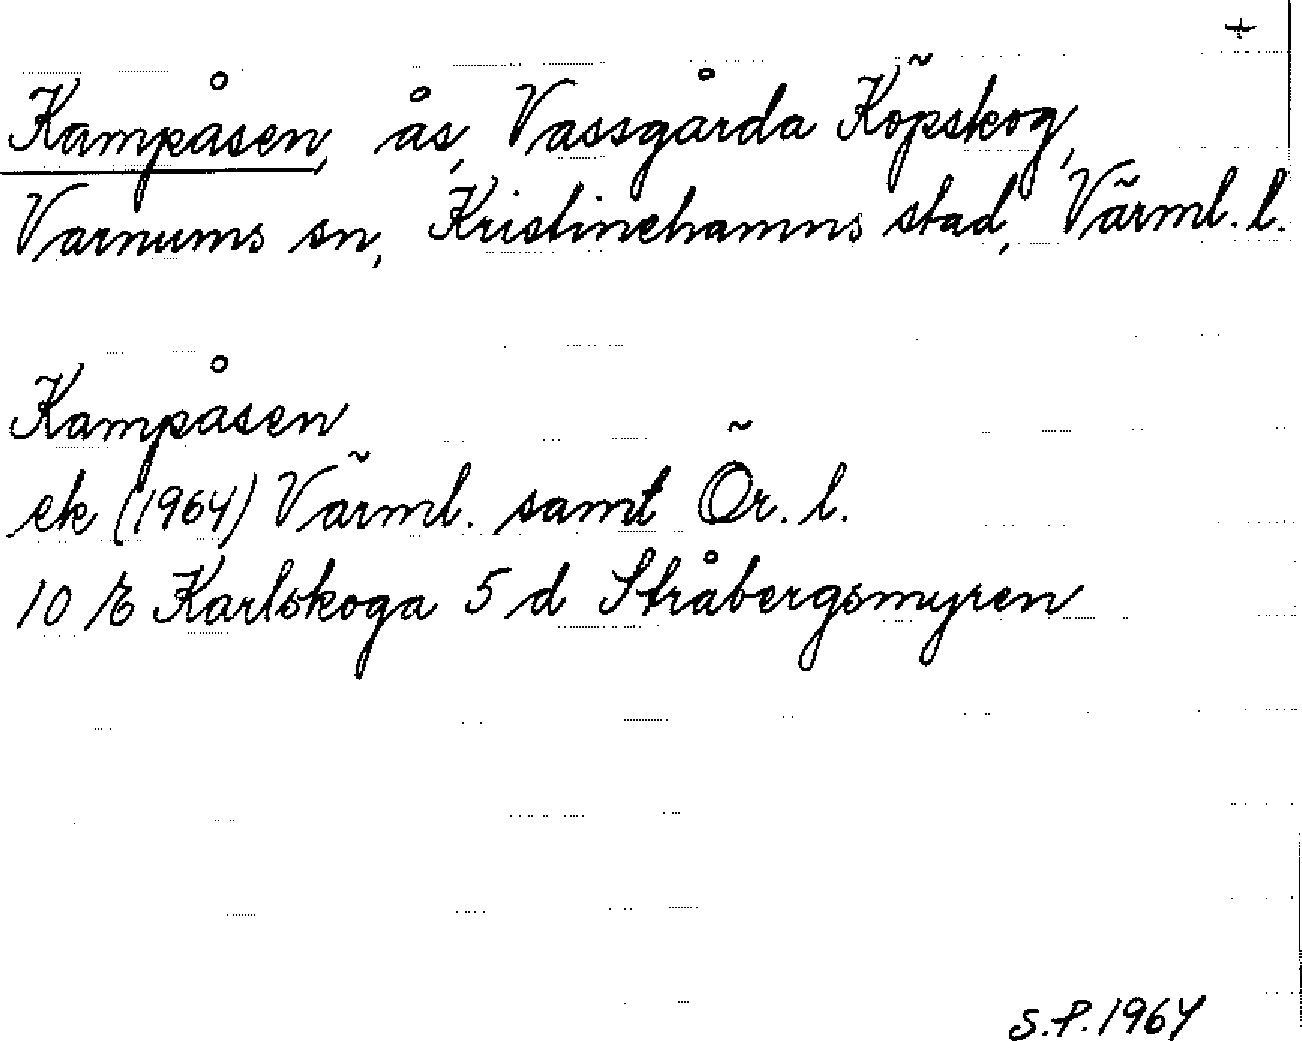 +
Kampåsen, ås, Vassgårda Köpskog,
Varnums sn, Kristinehamns stad, Värml. l.
Kampåsen
ek (1964) Värml. samt Ör. l.
10 E Karlskoga 5 d Stråbergsmyren
S.P. 1964